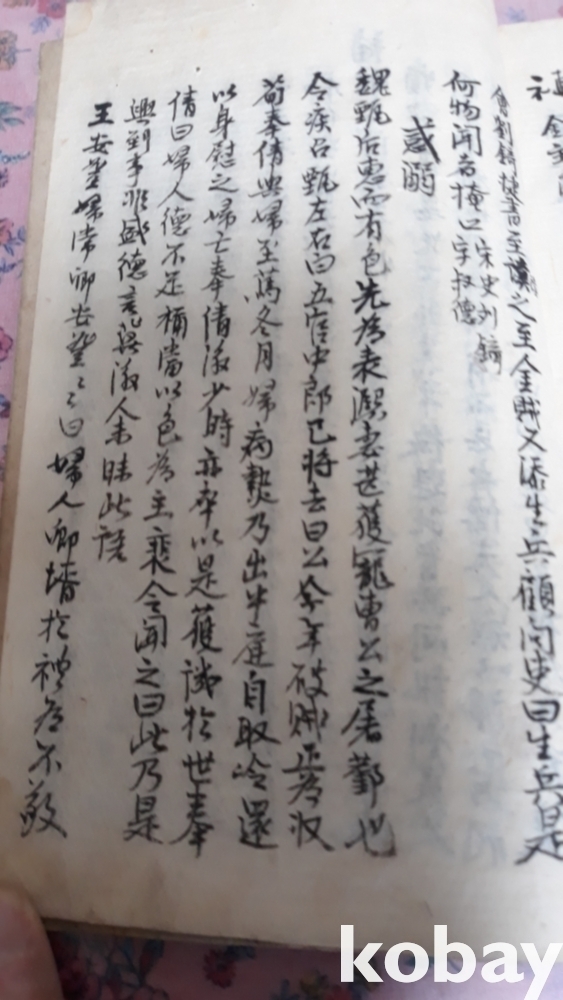 會劉錡捷書至讀之至金賊又添生兵顧問吏曰生兵是
何物聞者掩口 宋史列 錡
字叔德
惑溺
魏甄后惠而有色先為袁熙妻甚獲寵曹公之屠鄴也
令疾召甄左右白五官中郎已將去曰公今年破賊正為奴
荀奉倩與婦至篤冬月婦病熱乃出中庭自取冷還
以身慰之婦亡奉倩後少時亦卒以是獲譏於世奉
倩曰婦人德不足稱當以色為主裴令聞之曰此乃是
興到事非盛德言冀後人未昧此語
王安豐婦常卿安豐〻〻曰婦人卿壻於禮為不敬
kobay